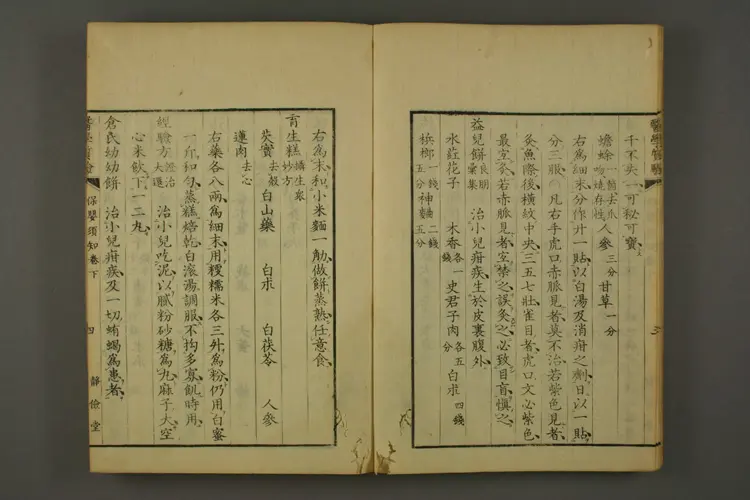 千不失一可秘可寶
蟾蜍一箇去爪燒存性人參三分甘草一分
右爲細末分作廿一貼以白湯及消疳之劑日以一貼
分三服凡右手虎口赤脈見者莫不治若紫色見者
灸魚際後橫紋中央三五七壯雀目者虎口文必紫色
最宜灸若赤脈見者宜禁之誤灸之必致目盲愼之
益兒餅良朋彙集治小兒疳疾生於皮裏腹外
水葒花子木香各一錢史君子肉各五分白朮四錢
梹榔一錢五分神麯二錢五分
三
右爲末和小米麵一觔做餅蒸熟任意食
育生糕攝生眾妙方
芡實去殼白山藥白朮白茯苓人參
蓮肉去心
右藥各八兩爲細末用粳糯米各三升爲粉仍用白蜜
一斤和勻蒸糕焙乾白滾湯調服不拘多寡飢時用
經驗方證治大還治小兒吃泥以膩粉砂糖爲丸麻子大空
心米飲下一二丸
倉氏幼幼餅治小兒疳疾及一切蚘蝎爲患者
保嬰須知卷下
四
靜儉堂